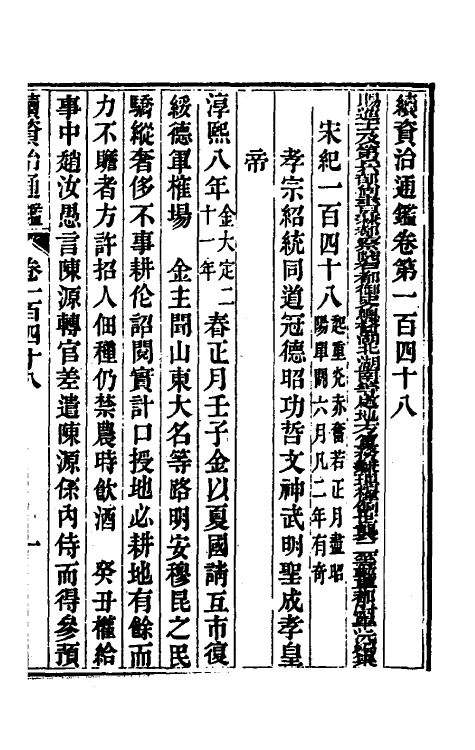 續資治通鑑卷第一百四十八
宋紀一百四十八起重光赤奮若正月盡昭陽單閼六月凡二年有奇
孝宗紹統同道冠德昭功哲文神武明聖成孝皇
帝
淳熙八年金大定二十一年春正月壬子金以夏國請互市復
綏德軍榷場　金主聞山東大名等路明安穆昆之民
驕縱奢侈不事耕伦詔閱實計口授地必耕地有餘而
力不贍者方許招人佃種仍禁農時飲酒　癸丑權給
事中趙汝愚言陳源轉官差遣陳源係內侍而得參預
續資治通鑑　卷一百四十八　一